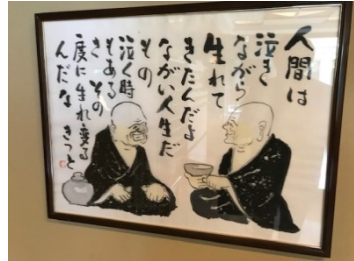 人間は
泣き
ながら
生れて
きたんだよ
ながい人生だ
その
泣く時
もある
さ その
度に生れ変る
んだな きっと